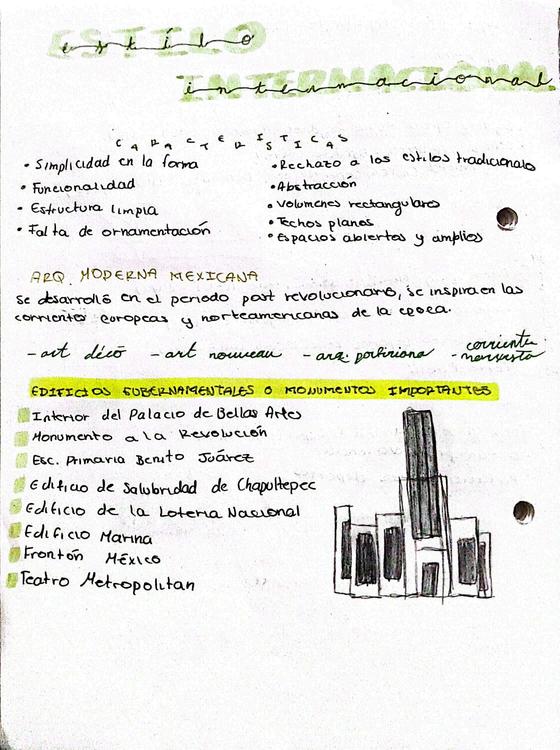 estílo
ESTILO
internacional
INTERNACIONAL
CARACTERISTICAS
• Simplicidad en la forma
• Funcionalidad
• Estructura limpia
• Falta de ornamentación
• Rechazo a los estilos tradicionales
• Abstracción
• Volumenes rectangulares
• Techos planos
• Espacios abiertos y amplios
ARQ. MODERNA MEXICANA
Se desarrolló en el periodo post revolucionario, se inspira en las
corrientes europeas y norteamericanas de la epoca.
- art déco - art nouveau - arq. porfiriana - corriente
EDIFICIOS GUBERNAMENTALES O MONUMENTOS IMPORTANTES
Interior del Palacio de Bellas Artes
Monumento a la Revolución
Esc. Primaria Benito Juárez
Edificio de Salubridad de Chapultepec
Edificio de la Loteria Nacional
Edificio Marina
Frontón México
Teatro Metropolitan